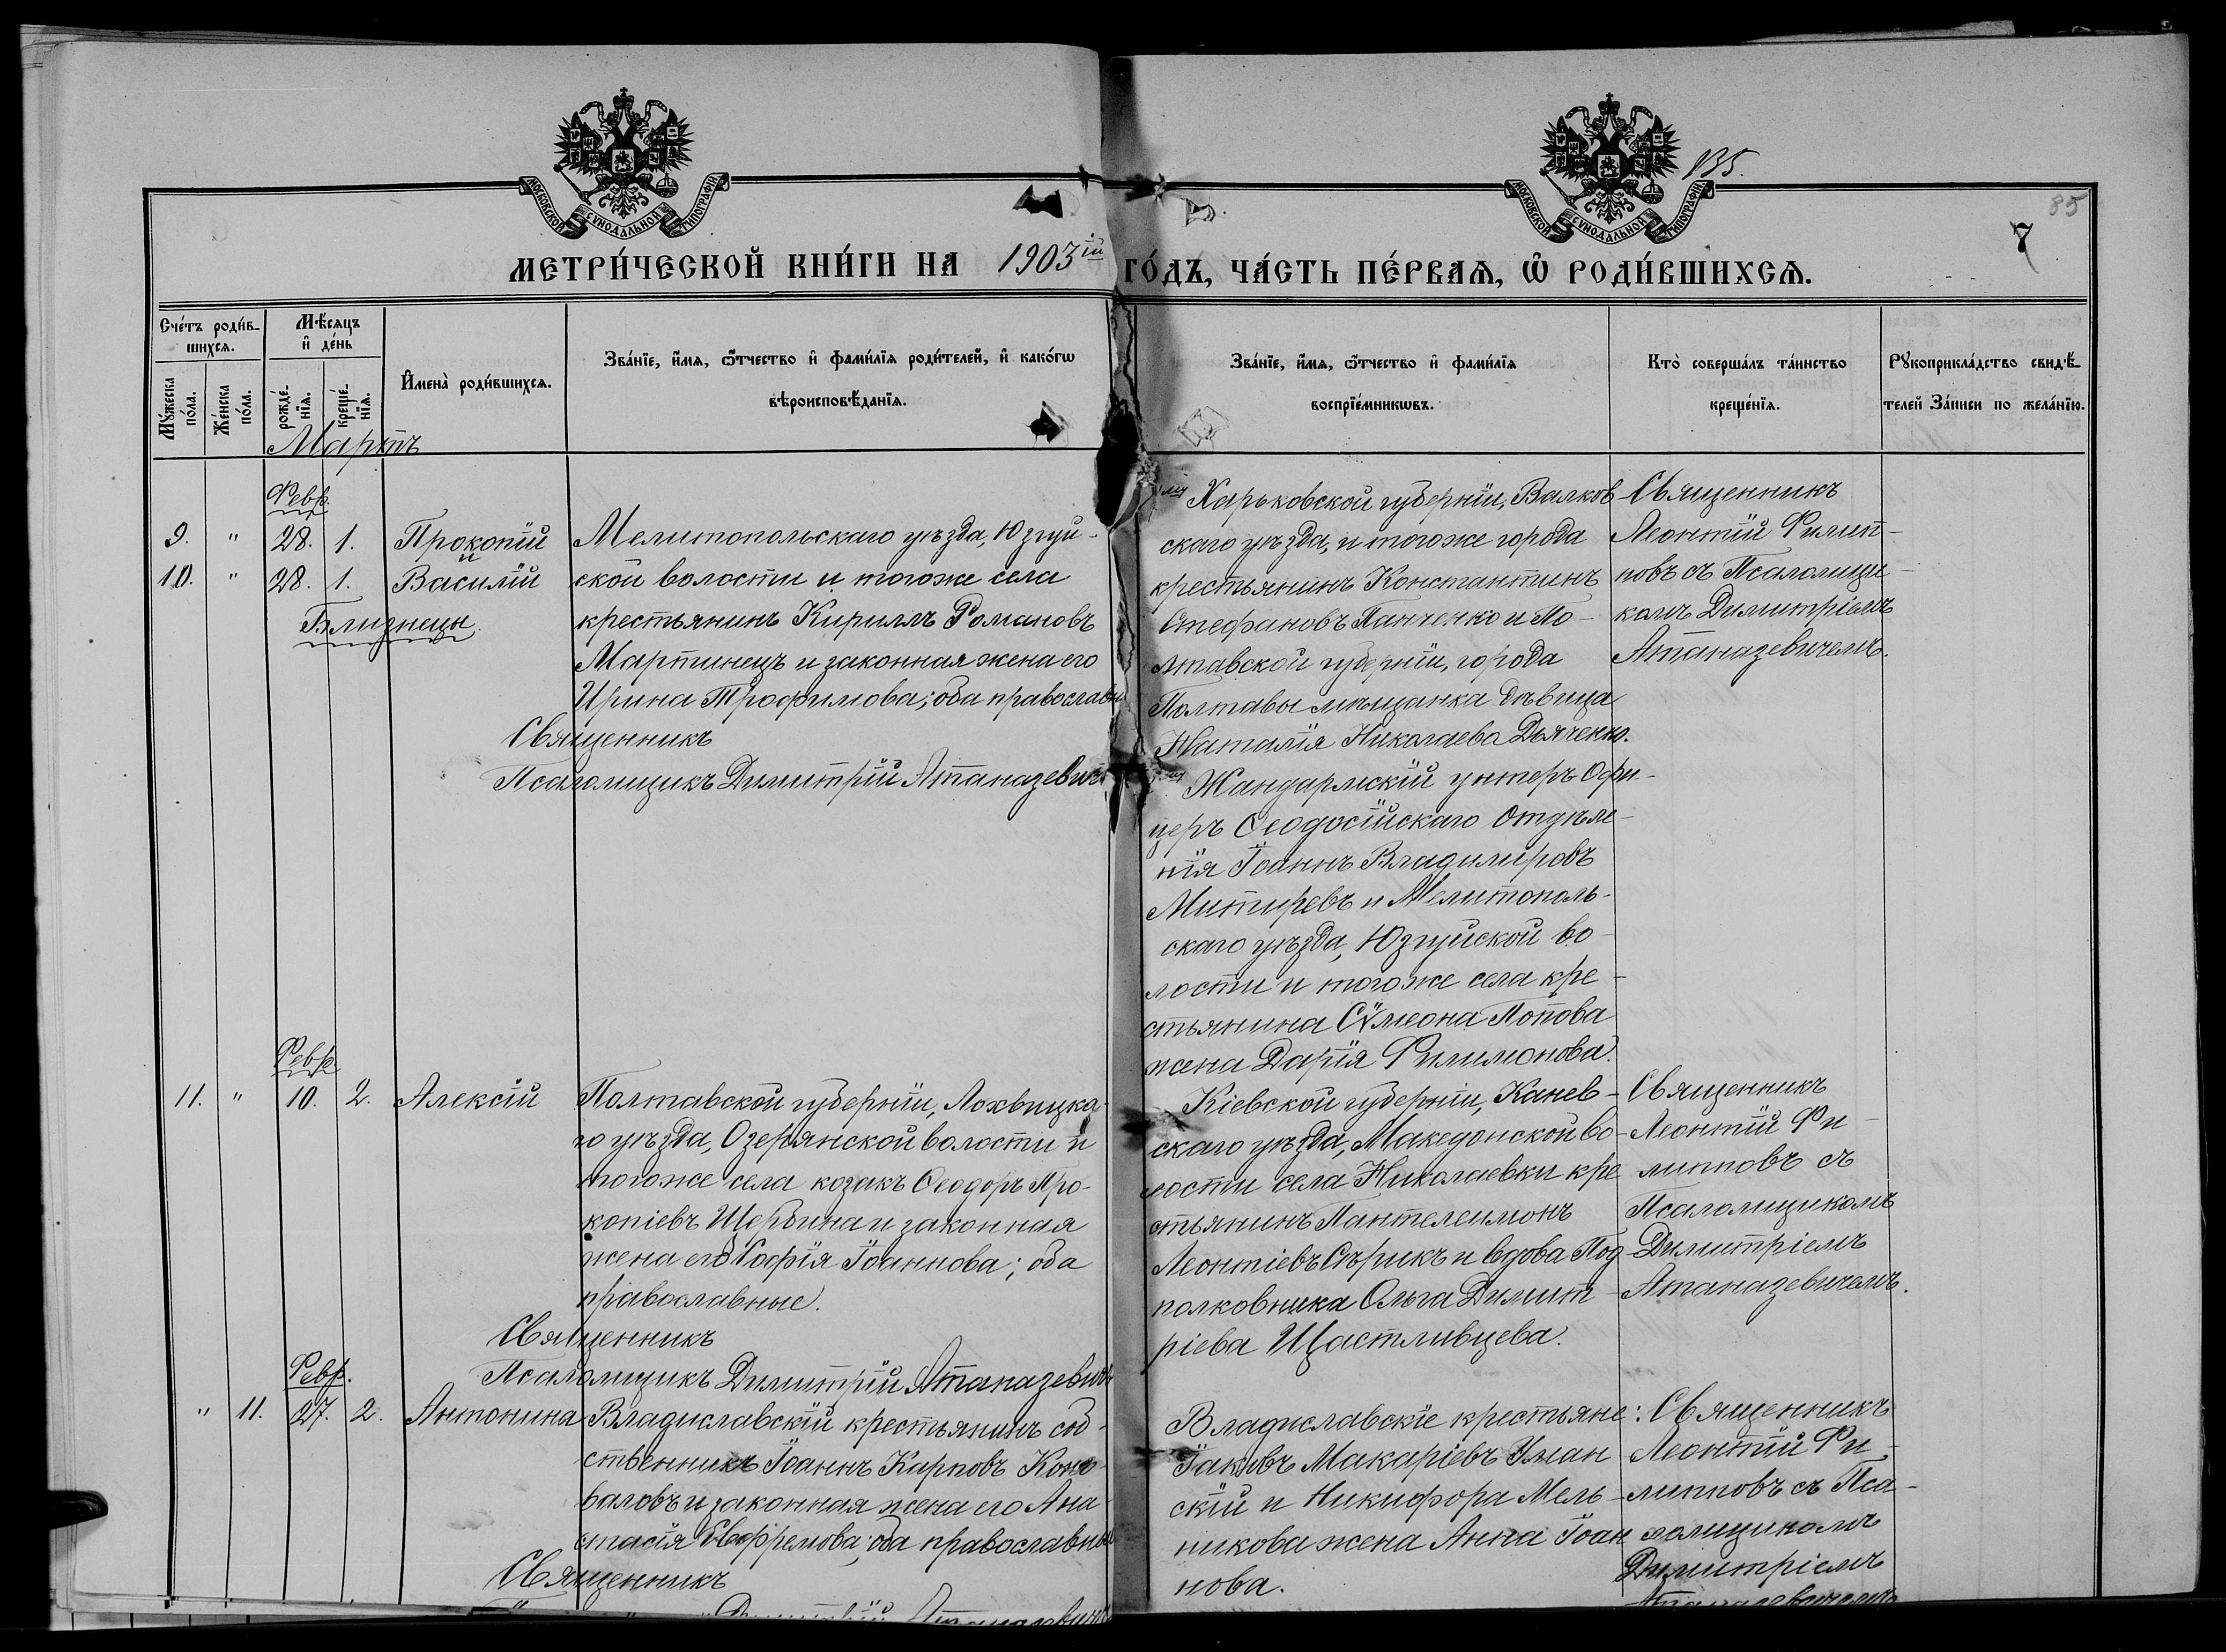 135.
85
7
МОСКОВСКОЙ СУНОДАЛЬНОЙ ТИПОГРАФІИ.
МОСКОВСКОЙ СУНОДАЛЬНОЙ ТИПОГРАФІИ.
МЕТРИ́ЧЕСКОЙ КНИ́ГИ НА 1903ій ГО́ДЪ, ЧА́СТЬ ПЕ́РВАѦ, Ѡ҆ РОДИ́ВШИХСѦ.
Сче́тъ роди́в-
шихсѧ.
Мѣ́сѧцъ
и҆ де́нь
Мꙋ́жеска
по́ла.
Же́нска
по́ла.
рожде́-
нїѧ.
креще́-
нїѧ.
И҆мена̀ роди́вшихсѧ.
Зва́нїе, и҆́мѧ, ѻ҆́тчество и҆ фами́лїѧ роди́телей, и҆ како́гѡ
вѣроисповѣ́данїѧ.
Зва́нїе, и҆́мѧ, ѻ҆́тчество и҆ фами́лїѧ
воспрїе́мникѡвъ.
Кто̀ соверша́лъ та́инство
креще́нїѧ.
Рꙋкоприкла́дство свидѣ́-
телей За́писи по жела́нїю.
Мартъ
Февр.
9. " 28. 1. Прокопій
и
10. " 28. 1. Василій
Близнецы.
Мелитопольскаго уѣзда, Юзкуй-
ской волости и тогоже села
крестьянинъ Кириллъ Романовъ
Мартинецъ и законная жена его
Ирина Трофимова; оба православн
Священникъ
Псаломщикъ Димитрій Атаназевичъ
Харьковской губерніи, Валков-
скаго уѣзда, и тогоже города
крестьянинъ Константинъ
Стефановъ Панченко и По-
лтавской губерніи, города
Полтавы мѣщанка дѣвица
Наталія Николаева Дьяченко.
Жандармскій унтеръ офи-
церъ Ѳеодосійскаго отдѣле-
нія Іоаннъ Владиміровъ
Митиревъ и Мелитополь-
скаго уѣзда, Юзкуйской во-
лости и тогоже села кре-
стьянина Сѵмеона Попова
жена Дарія Филимонова.
Священникъ
Леонтій Филип-
повъ съ Псаломщи-
комъ Димитріемъ
Атаназевичемъ.
Февр.
11. " 10. 2. Алексій
Полтавской губерніи, Лохвицка-
го уѣзда, Озерянской волости и
тогоже села козакъ Ѳеодоръ Про-
копіевъ Щербина и законная
жена его Софія Іоаннова; оба
православные.
Священникъ
Псаломщикъ Димитрій Атаназевичъ
Кіевской губерніи, Канев-
скаго уѣзда, Македонской во-
лости села Николаевки кре
стьянинъ Пантелеимонъ
Леонтіевъ Сѣрикъ и вдова Под-
полковника Ольга Димит-
ріева Щастливцева.
Священникъ
Леонтій Фи-
липповъ съ
Псаломщикомъ
Димитріемъ
Атаназевичемъ.
Февр.
" 11. 27. 2. Антонина
Владиславскій крестьянинъ соб-
ственникъ Іоаннъ Карповъ Коно-
валовъ и законная жена его Ана
стасія Евфремова; оба православны
Священникъ
Димитрій Атаназевичъ
Владиславскіе крестьяне:
Іаковъ Макаріевъ Уман
скій и Никифора Мель-
никова жена Анна Іоан
нова.
Священникъ
Леонтій Фи-
липповъ съ Пса-
ломщикомъ
Димитріемъ
Атаназевичемъ